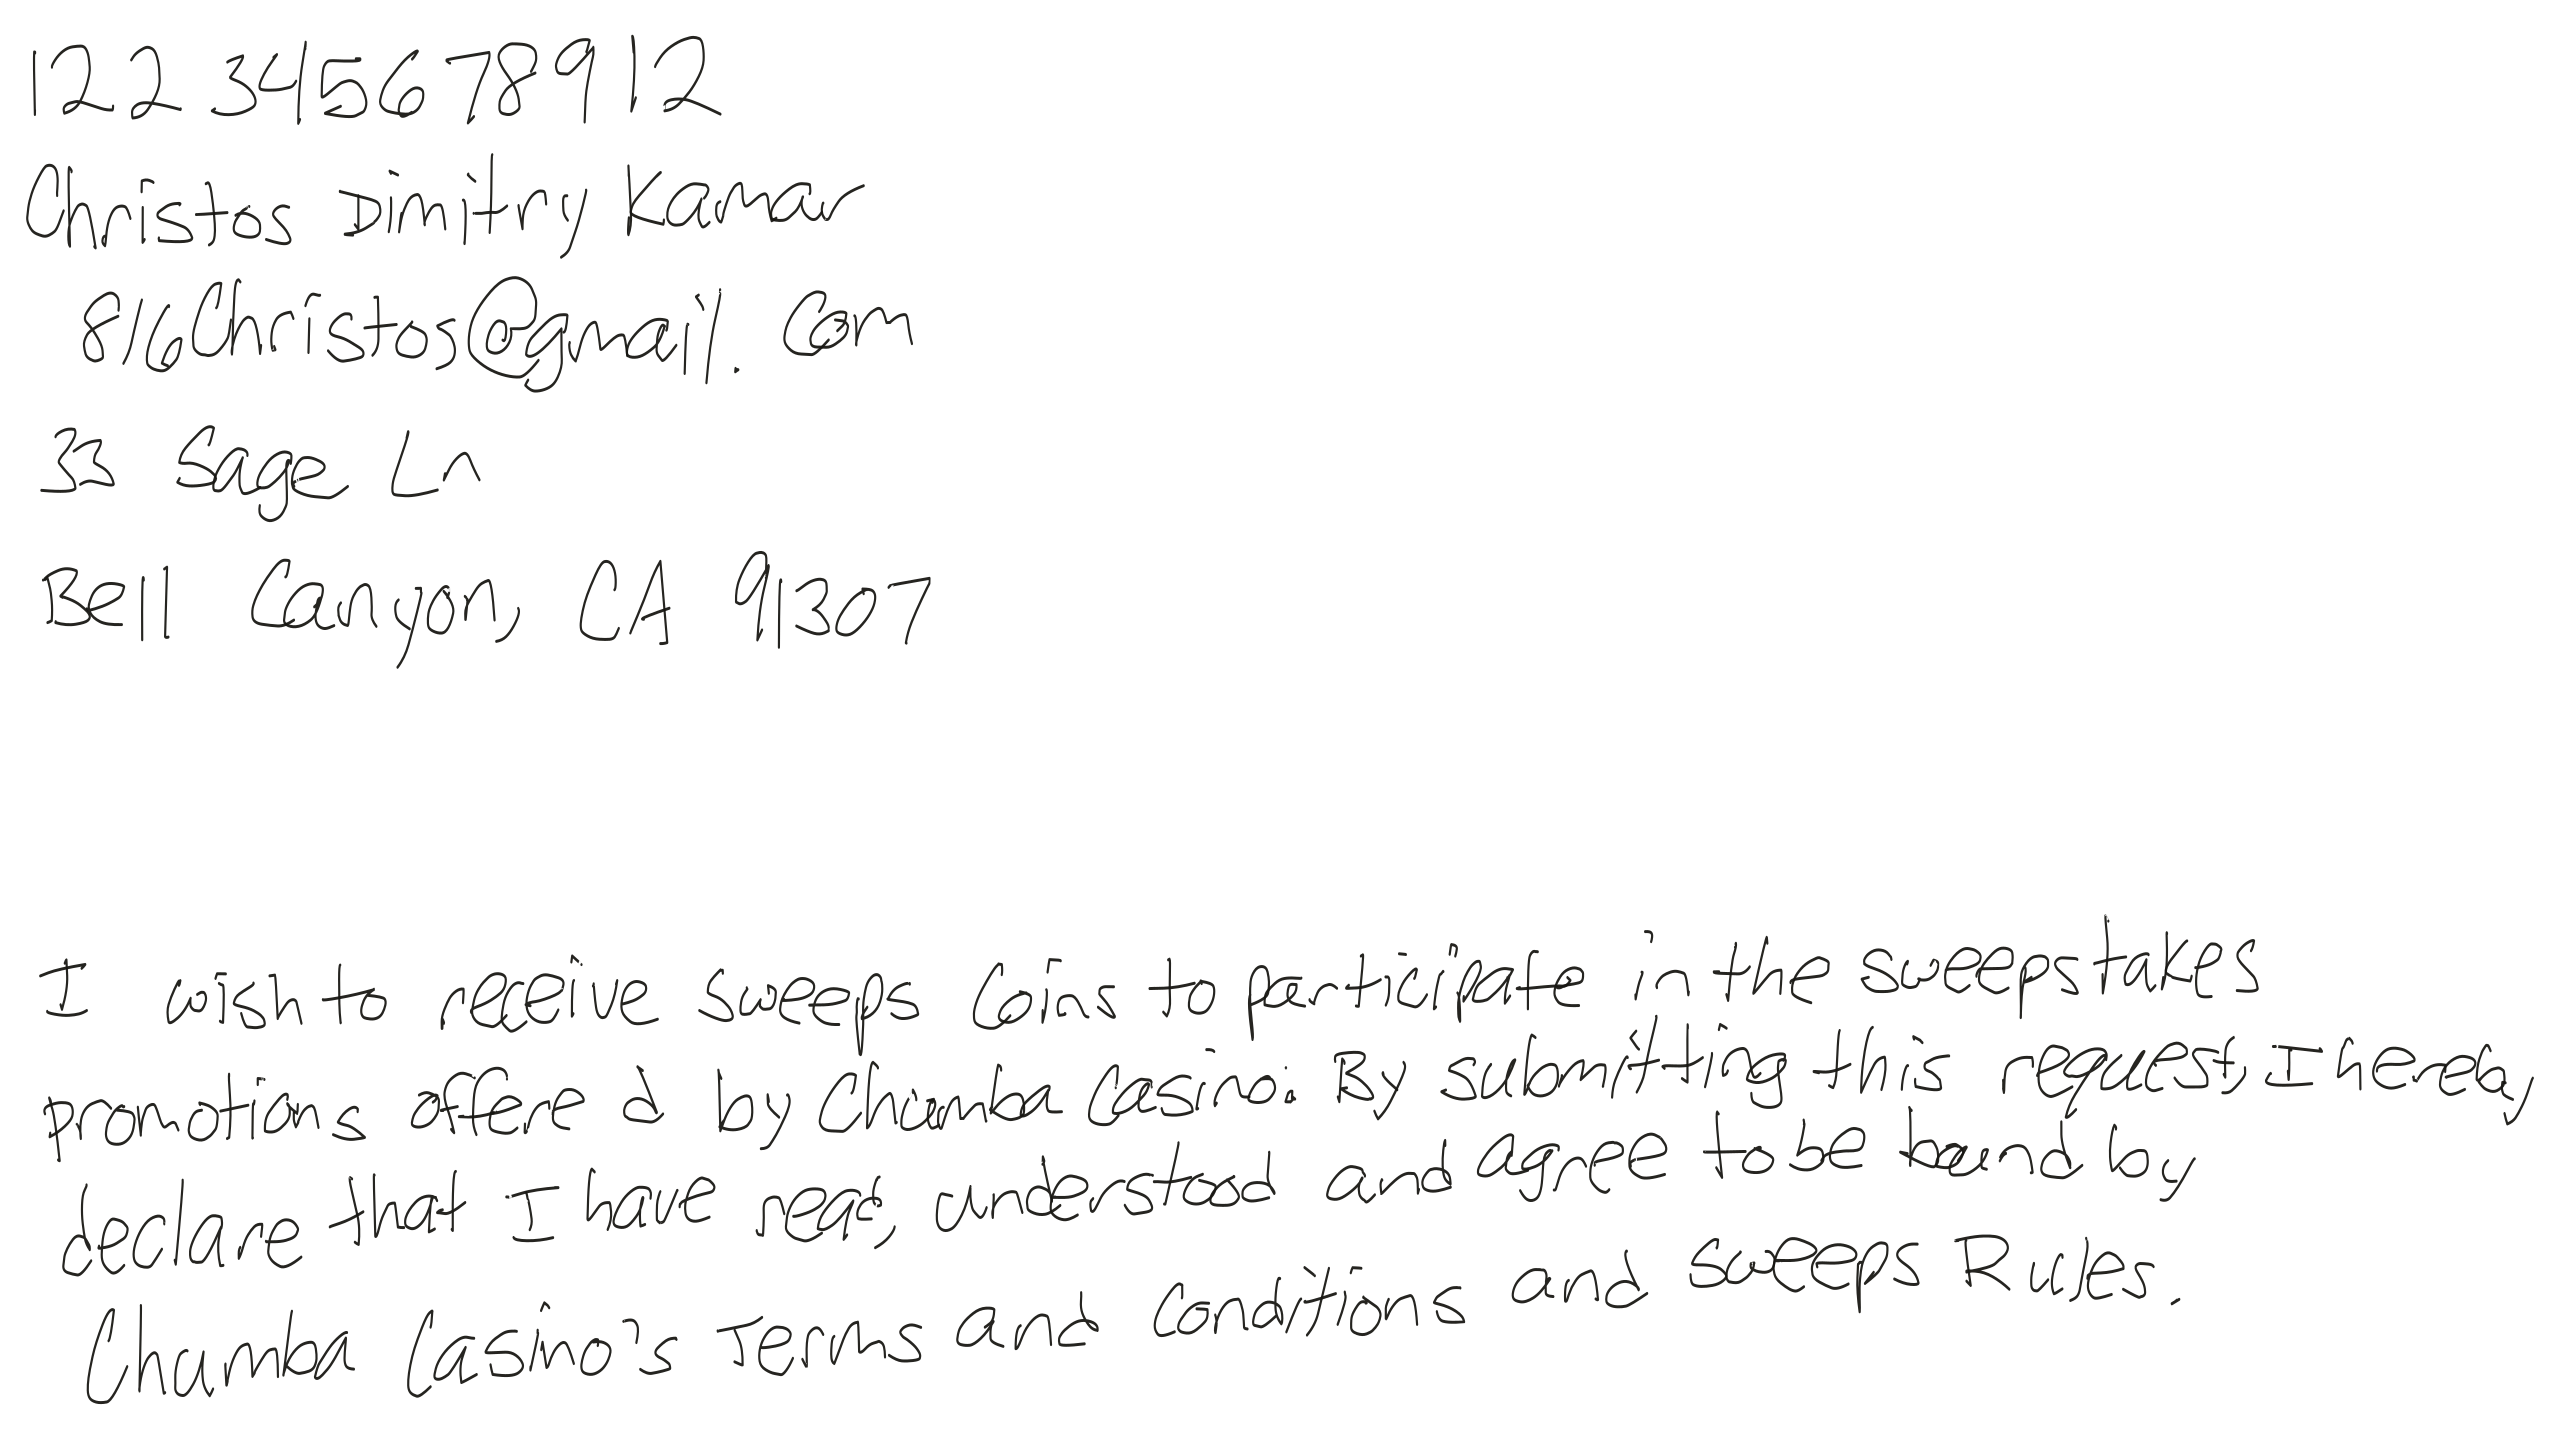 122 345678912
Christos Dimitry Kamar
816Christos@gmail.com
33 Sage Ln
Bell Canyon, CA 91307
I wish to receive sweeps Coins to participate in the sweepstakes
promotions offered by Chumba Casino. By submitting this request, I hereby
declare that I have read, understood and agree to be bound by
Chumba Casino's Terms and Conditions and Sweeps Rules.